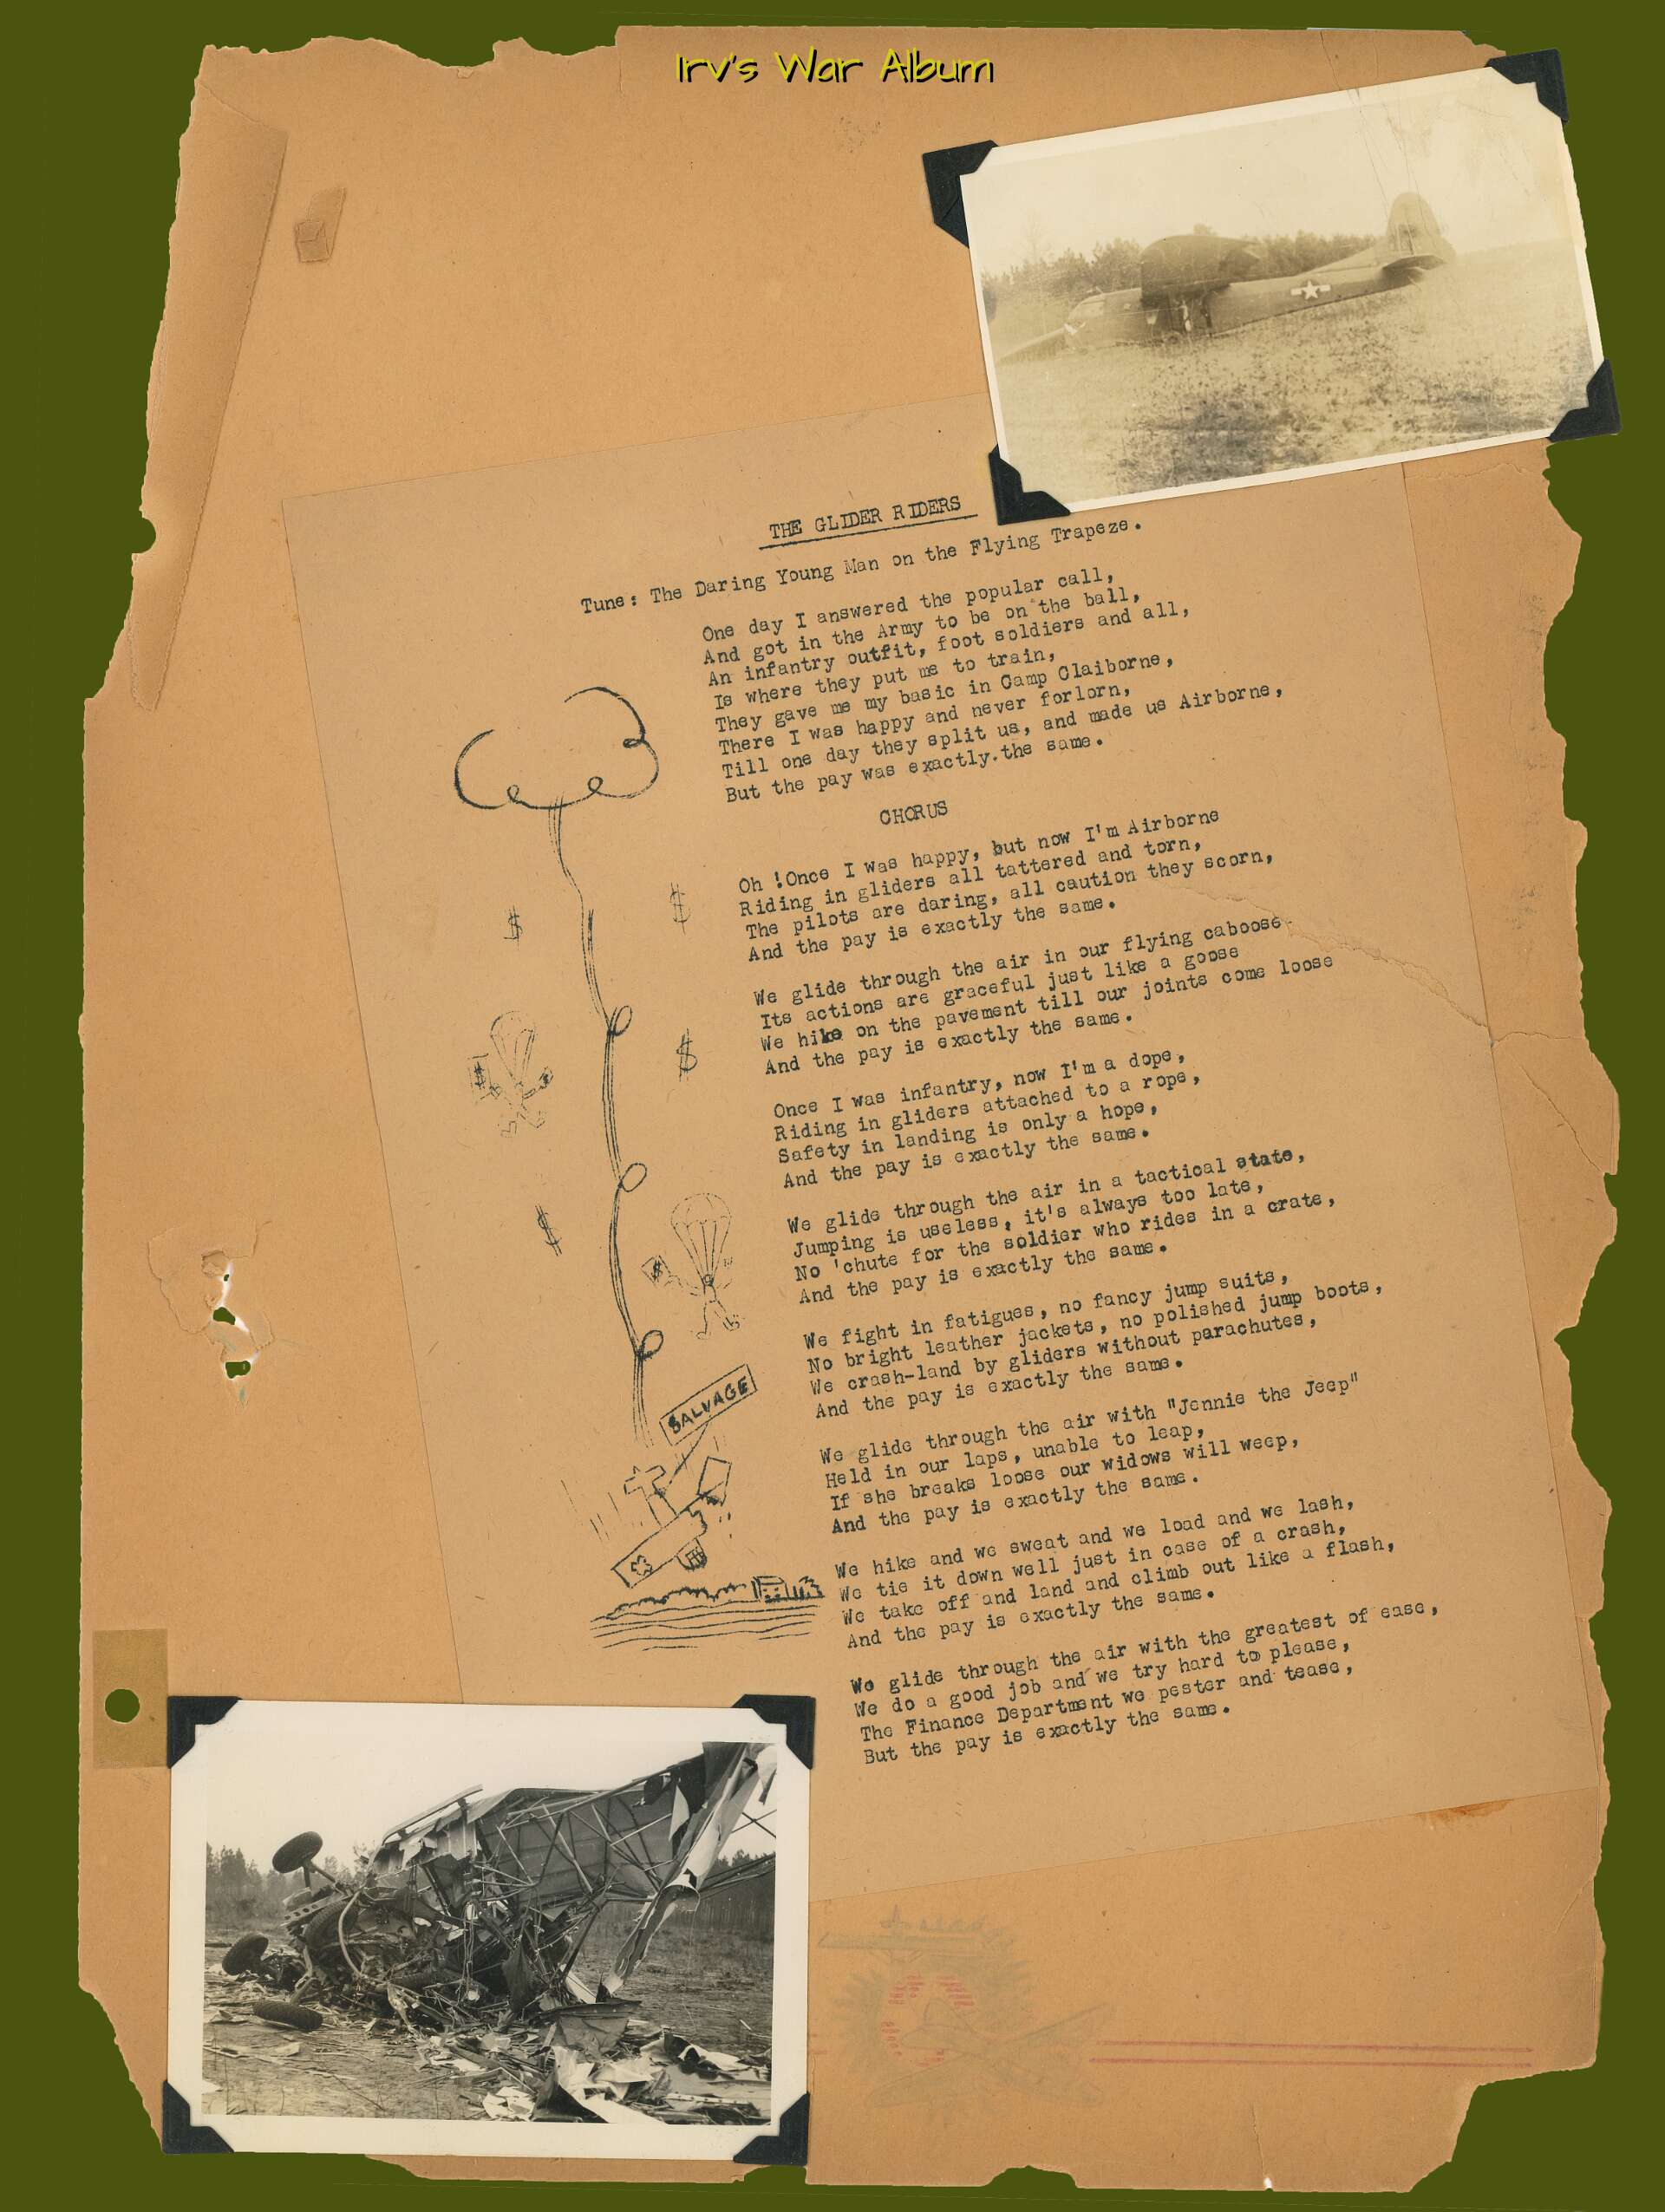 Irv's War Album
THE GLIDER RIDERS
Tune: The Daring Young Man on the Flying Trapeze.
One day I answered the popular call,
And got in the Army to be on the ball,
An infantry outfit, foot soldiers and all,
Is where they put me to train,
They gave me my basic in Camp Claiborne,
There I was happy and never forlorn,
Till one day they split us, and made us Airborne,
But the pay was exactly.the same.
CHORUS
Oh !Once I was happy, but now I'm Airborne
Riding in gliders all tattered and torn,
The pilots are daring, all caution they scorn,
And the pay is exactly the same.
We glide through the air in our flying caboose
Its actions are graceful just like a goose
We hike on the pavement till our joints come loose
And the pay is exactly the same.
Once I was infantry, now I'm a dope,
Riding in gliders attached to a rope,
Safety in landing is only a hope,
And the pay is exactly the same.
We glide through the air in a tactical state,
Jumping is useless, it's always too late,
No 'chute for the soldier who rides in a crate,
And the pay is exactly the same.
We fight in fatigues, no fancy jump suits,
No bright leather jackets, no polished jump boots,
We crash-land by gliders without parachutes,
And the pay is exactly the same.
We glide through the air with "Jennie the Jeep"
Held in our laps, unable to leap,
If she breaks loose our widows will weep,
And the pay is exactly the same.
We hike and we sweat and we load and we lash,
We tie it down well just in case of a crash,
We take off and land and climb out like a flash,
And the pay is exactly the same.
We glide through the air with the greatest of ease,
We do a good job and we try hard to please,
The Finance Department we pester and tease,
But the pay is exactly the same.
$
$
$
$
$
$
SALVAGE